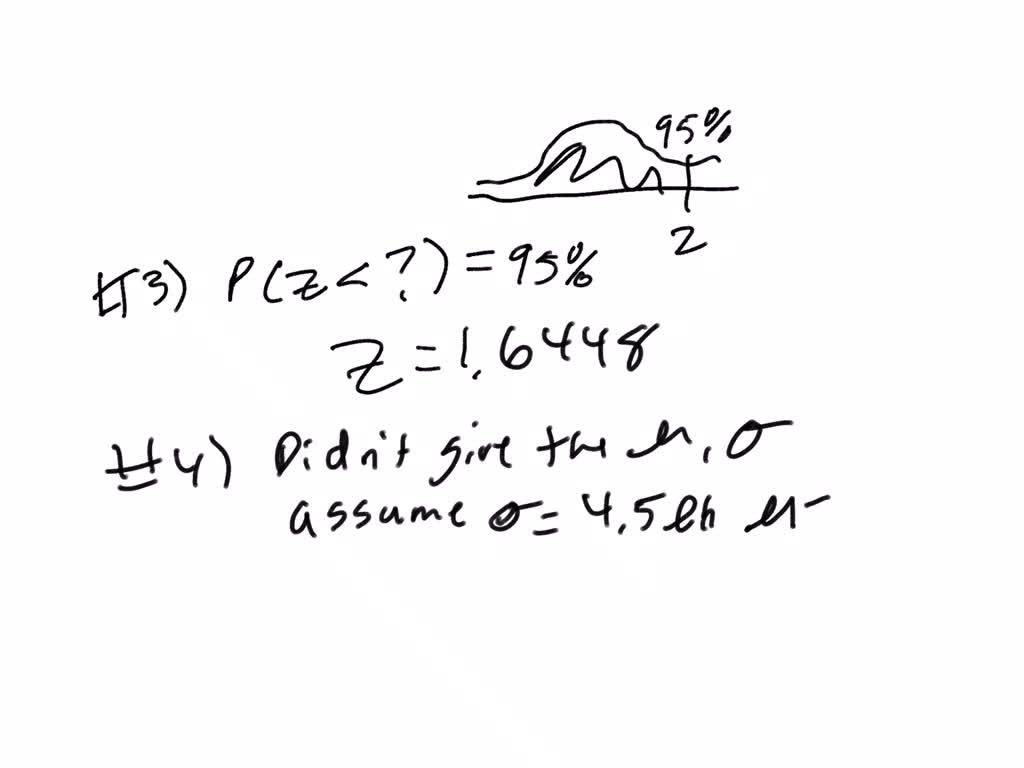 95%
z
#3) P(z < ?) = 95%
z = 1.6448
#4) Didn't give the μ, σ
assume σ = 4.5 μ